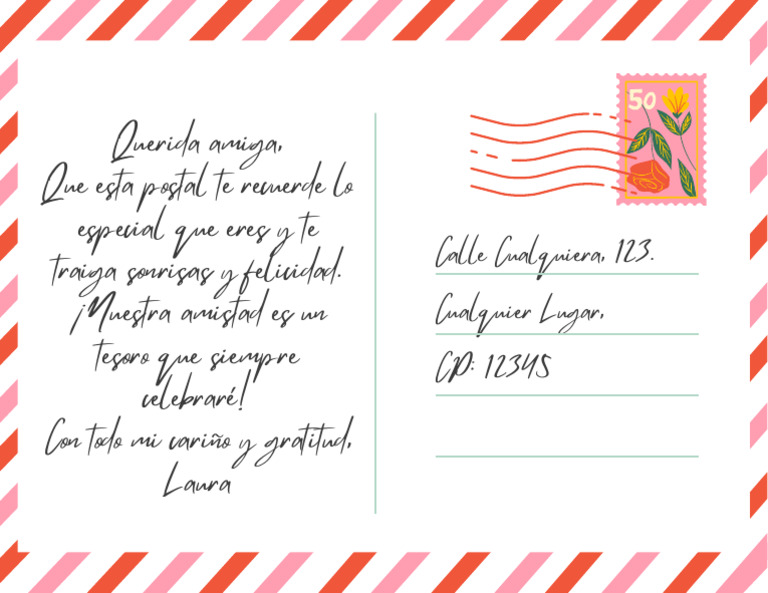 Querida amiga,
Que esta postal te recuerde lo
especial que eres y te
traiga sonrisas y felicidad.
¡Nuestra amistad es un
tesoro que siempre
celebraré!
Con todo mi cariño y gratitud,
Laura
50
Calle Cualquiera, 123.
Cualquier Lugar,
CP: 12345